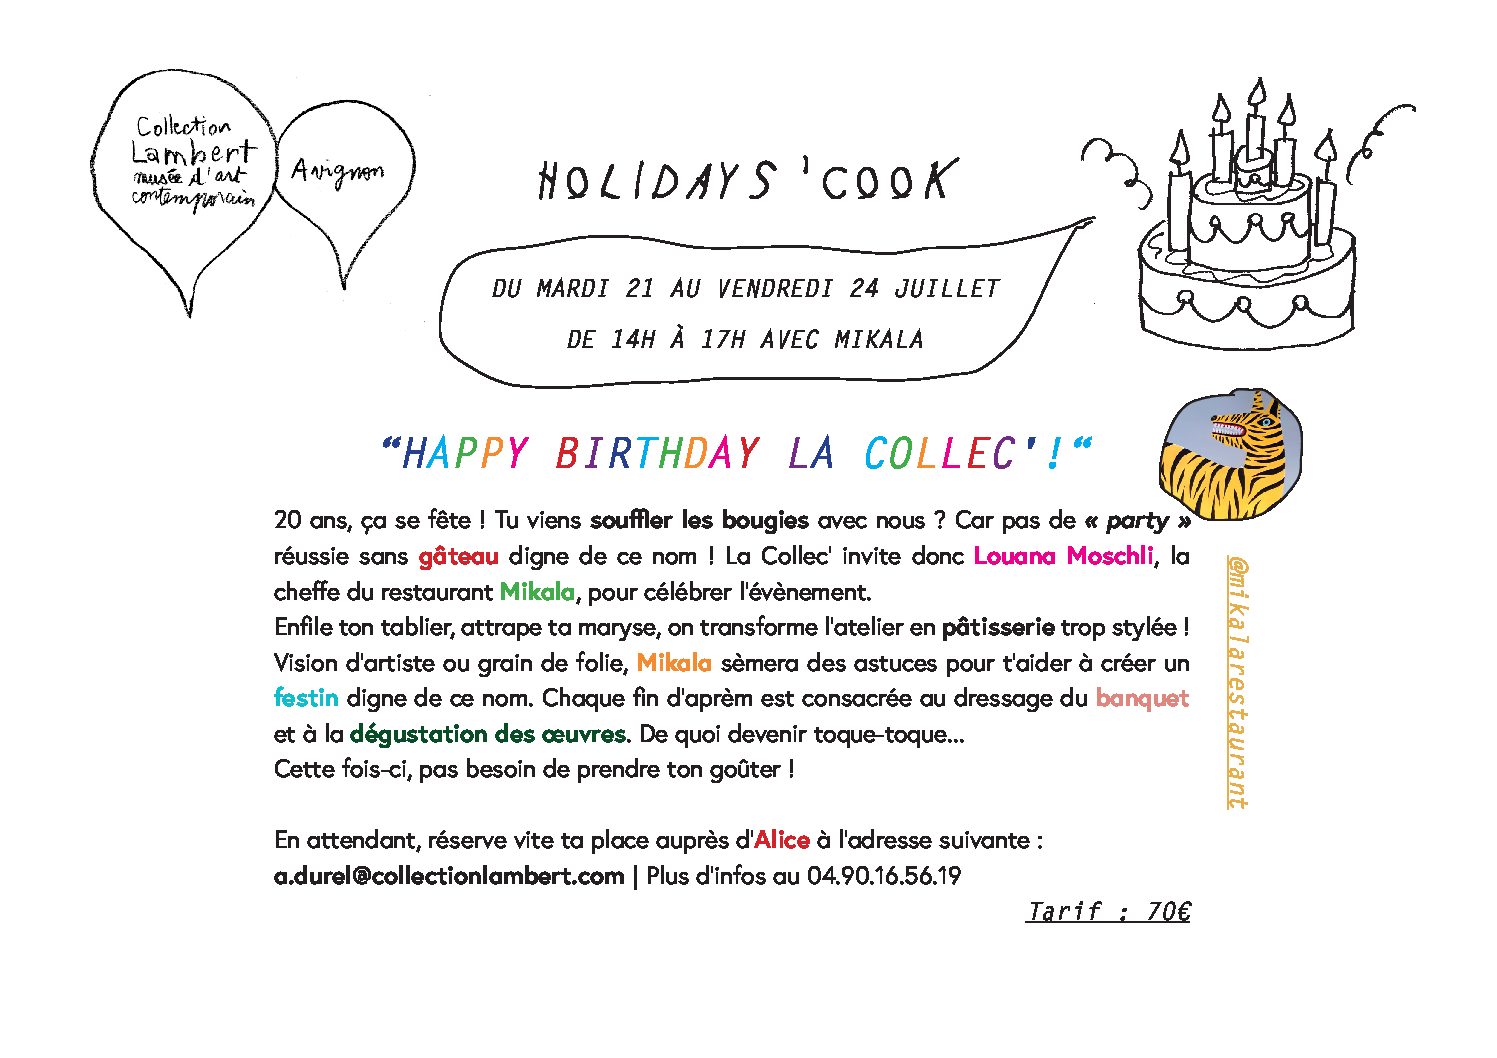 Collection
Lambert
musée d'art
contemporain
Avignon
HOLIDAYS'COOK
DU MARDI 21 AU VENDREDI 24 JUILLET
DE 14H À 17H AVEC MIKALA
“HAPPY BIRTHDAY LA COLLEC'!“
20 ans, ça se fête ! Tu viens souffler les bougies avec nous ? Car pas de « party »
réussie sans gâteau digne de ce nom ! La Collec' invite donc Louana Moschli, la
cheffe du restaurant Mikala, pour célébrer l'évènement.
Enfile ton tablier, attrape ta maryse, on transforme l'atelier en pâtisserie trop stylée !
Vision d'artiste ou grain de folie, Mikala sèmera des astuces pour t'aider à créer un
festin digne de ce nom. Chaque fin d'aprèm est consacrée au dressage du banquet
et à la dégustation des œuvres. De quoi devenir toque-toque...
Cette fois-ci, pas besoin de prendre ton goûter !
@mikalarestaurant
En attendant, réserve vite ta place auprès d'Alice à l'adresse suivante :
a.durel@collectionlambert.com | Plus d'infos au 04.90.16.56.19
Tarif : 70€